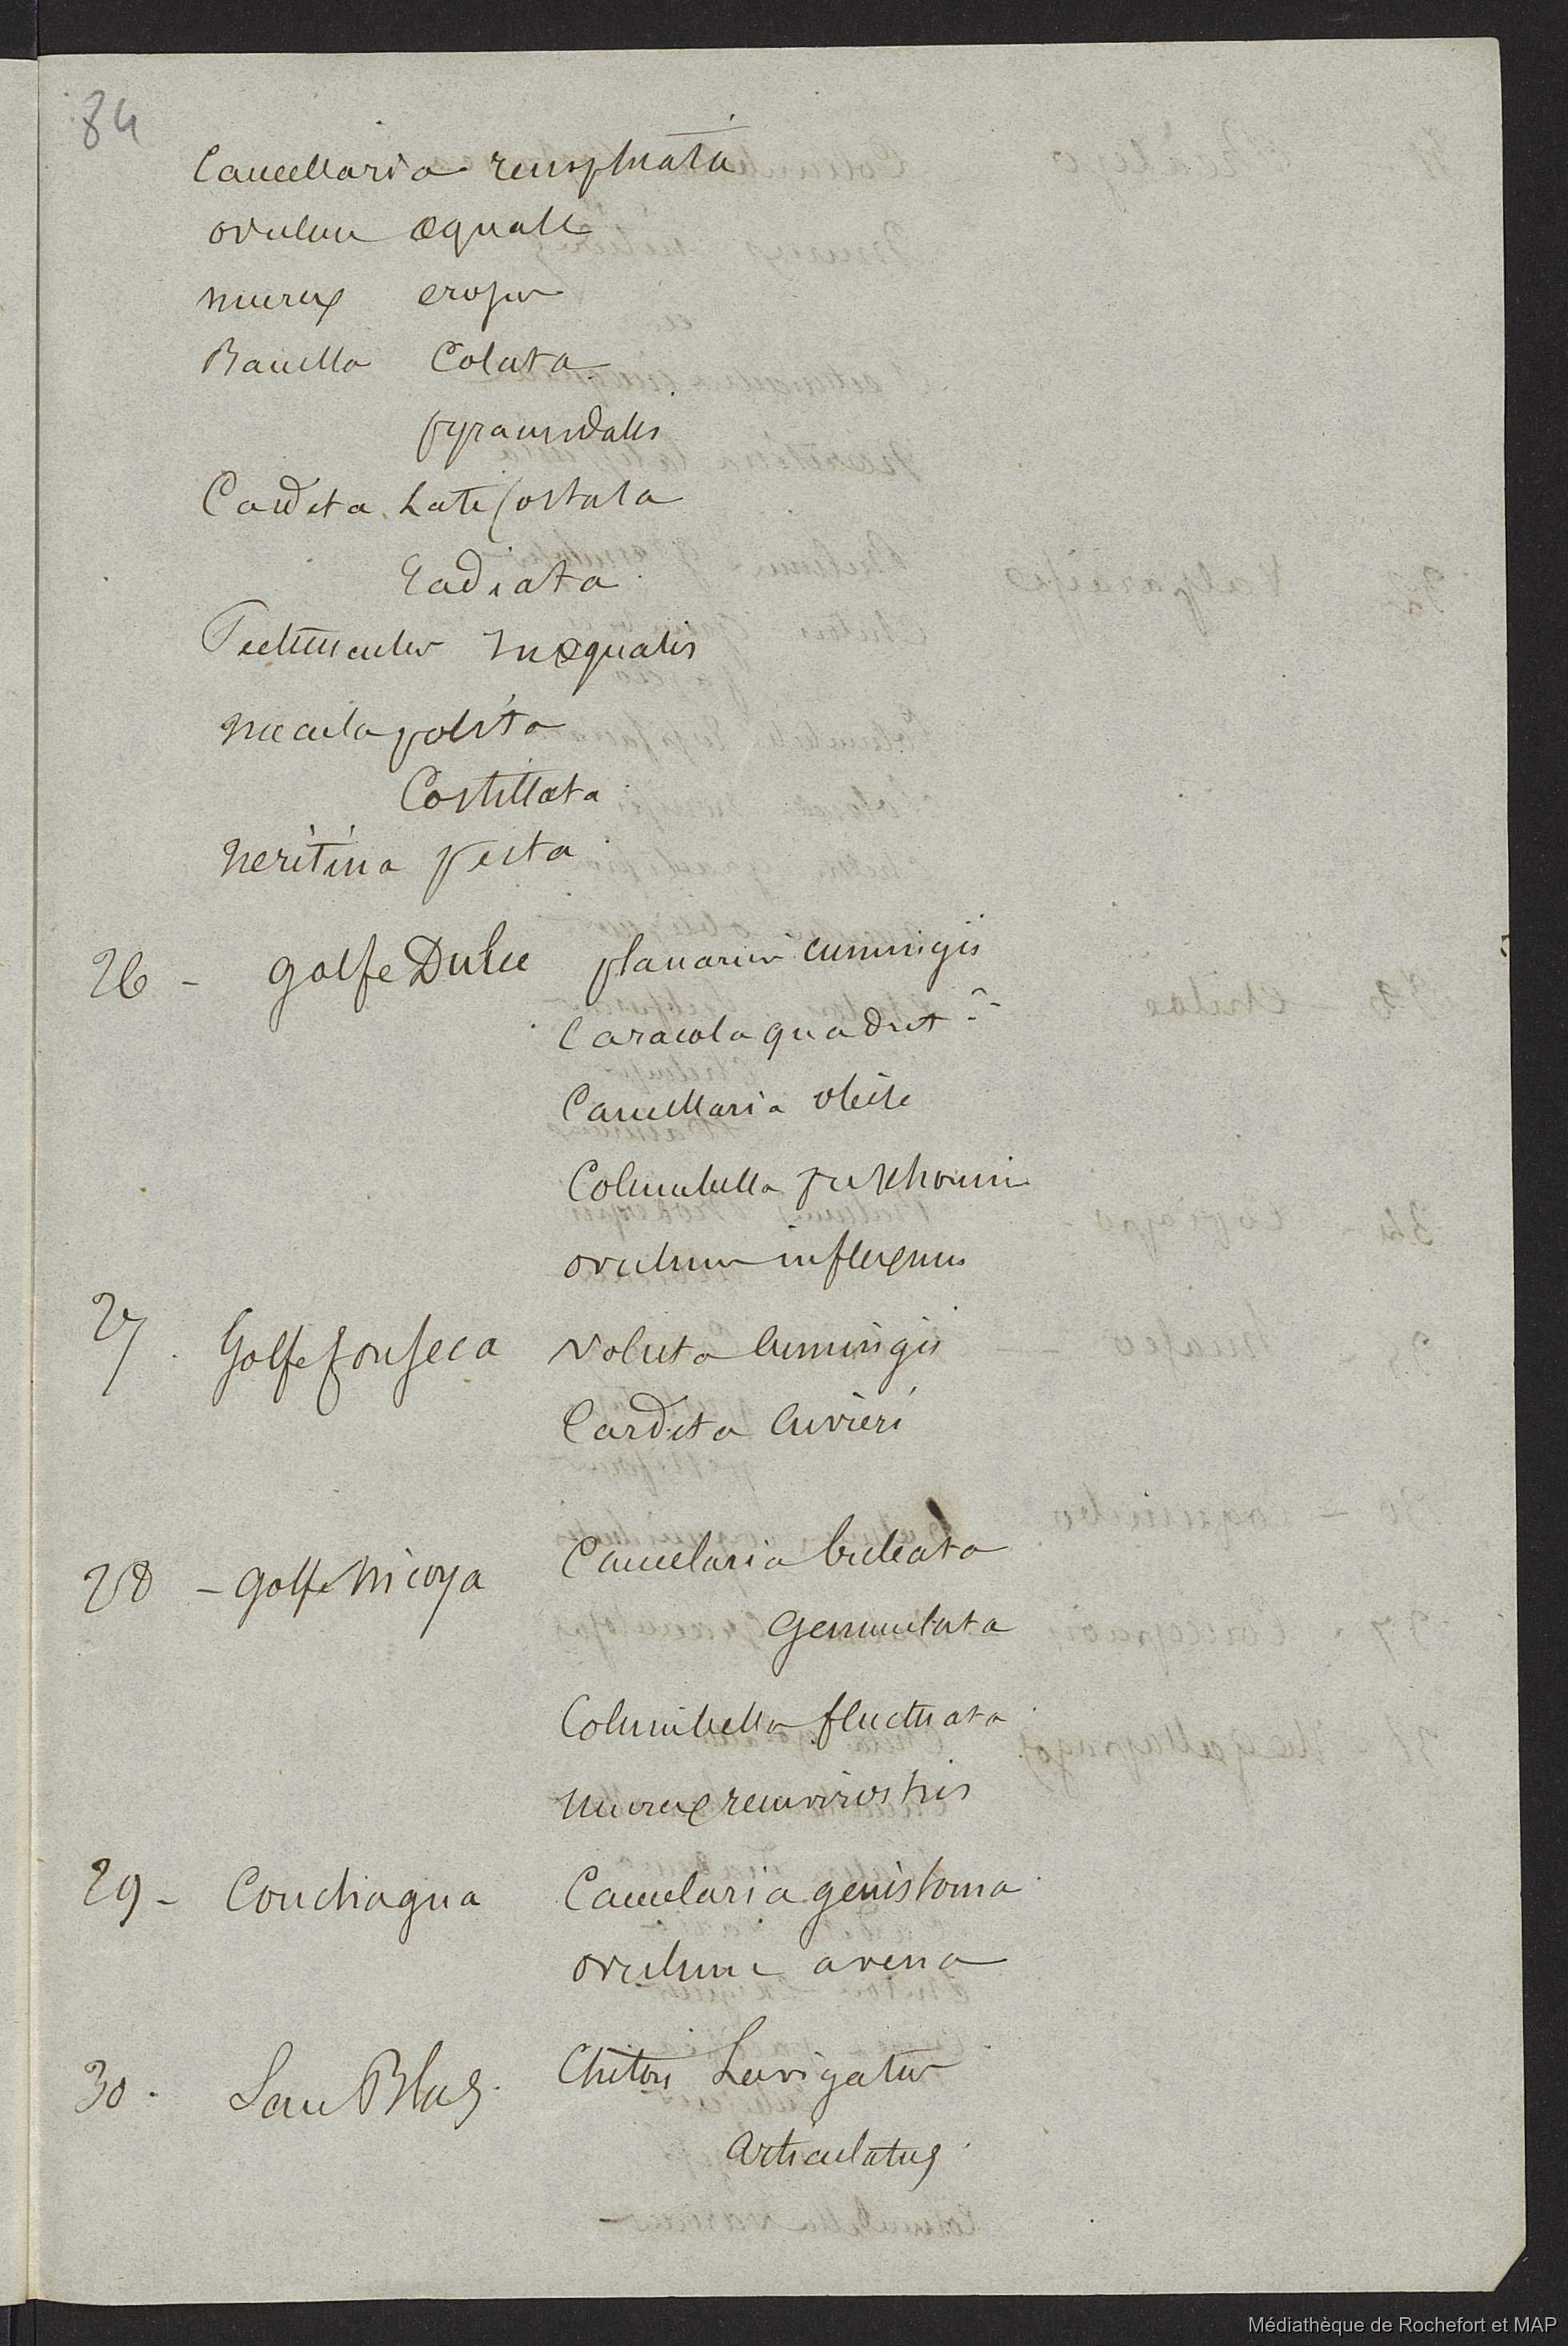 84
Cancellaria
ovulum æquale
murex erosus
Ranella Cælata
pyramidalis
Cardita Laticostata
radiata
Pectunculus inæqualis
nucula polita
Costellata
neritina picta
26 - golfe Dulce planorbis cumingii
Caracola quadrit
Cancellaria
Columbella
ovulum inflexum
27. Golfe fonseca voluta cumingii
Cardita Cuvieri
28 - golfe Nicoya Cancelaria buleata
gemmulata
Columbella fluctuata
murex recurvirostris
29 - Conchagua Cancelaria
ovulum avena
30. San Blas. Chiton Lævigatus
articulatus
Médiathèque de Rochefort et MAP